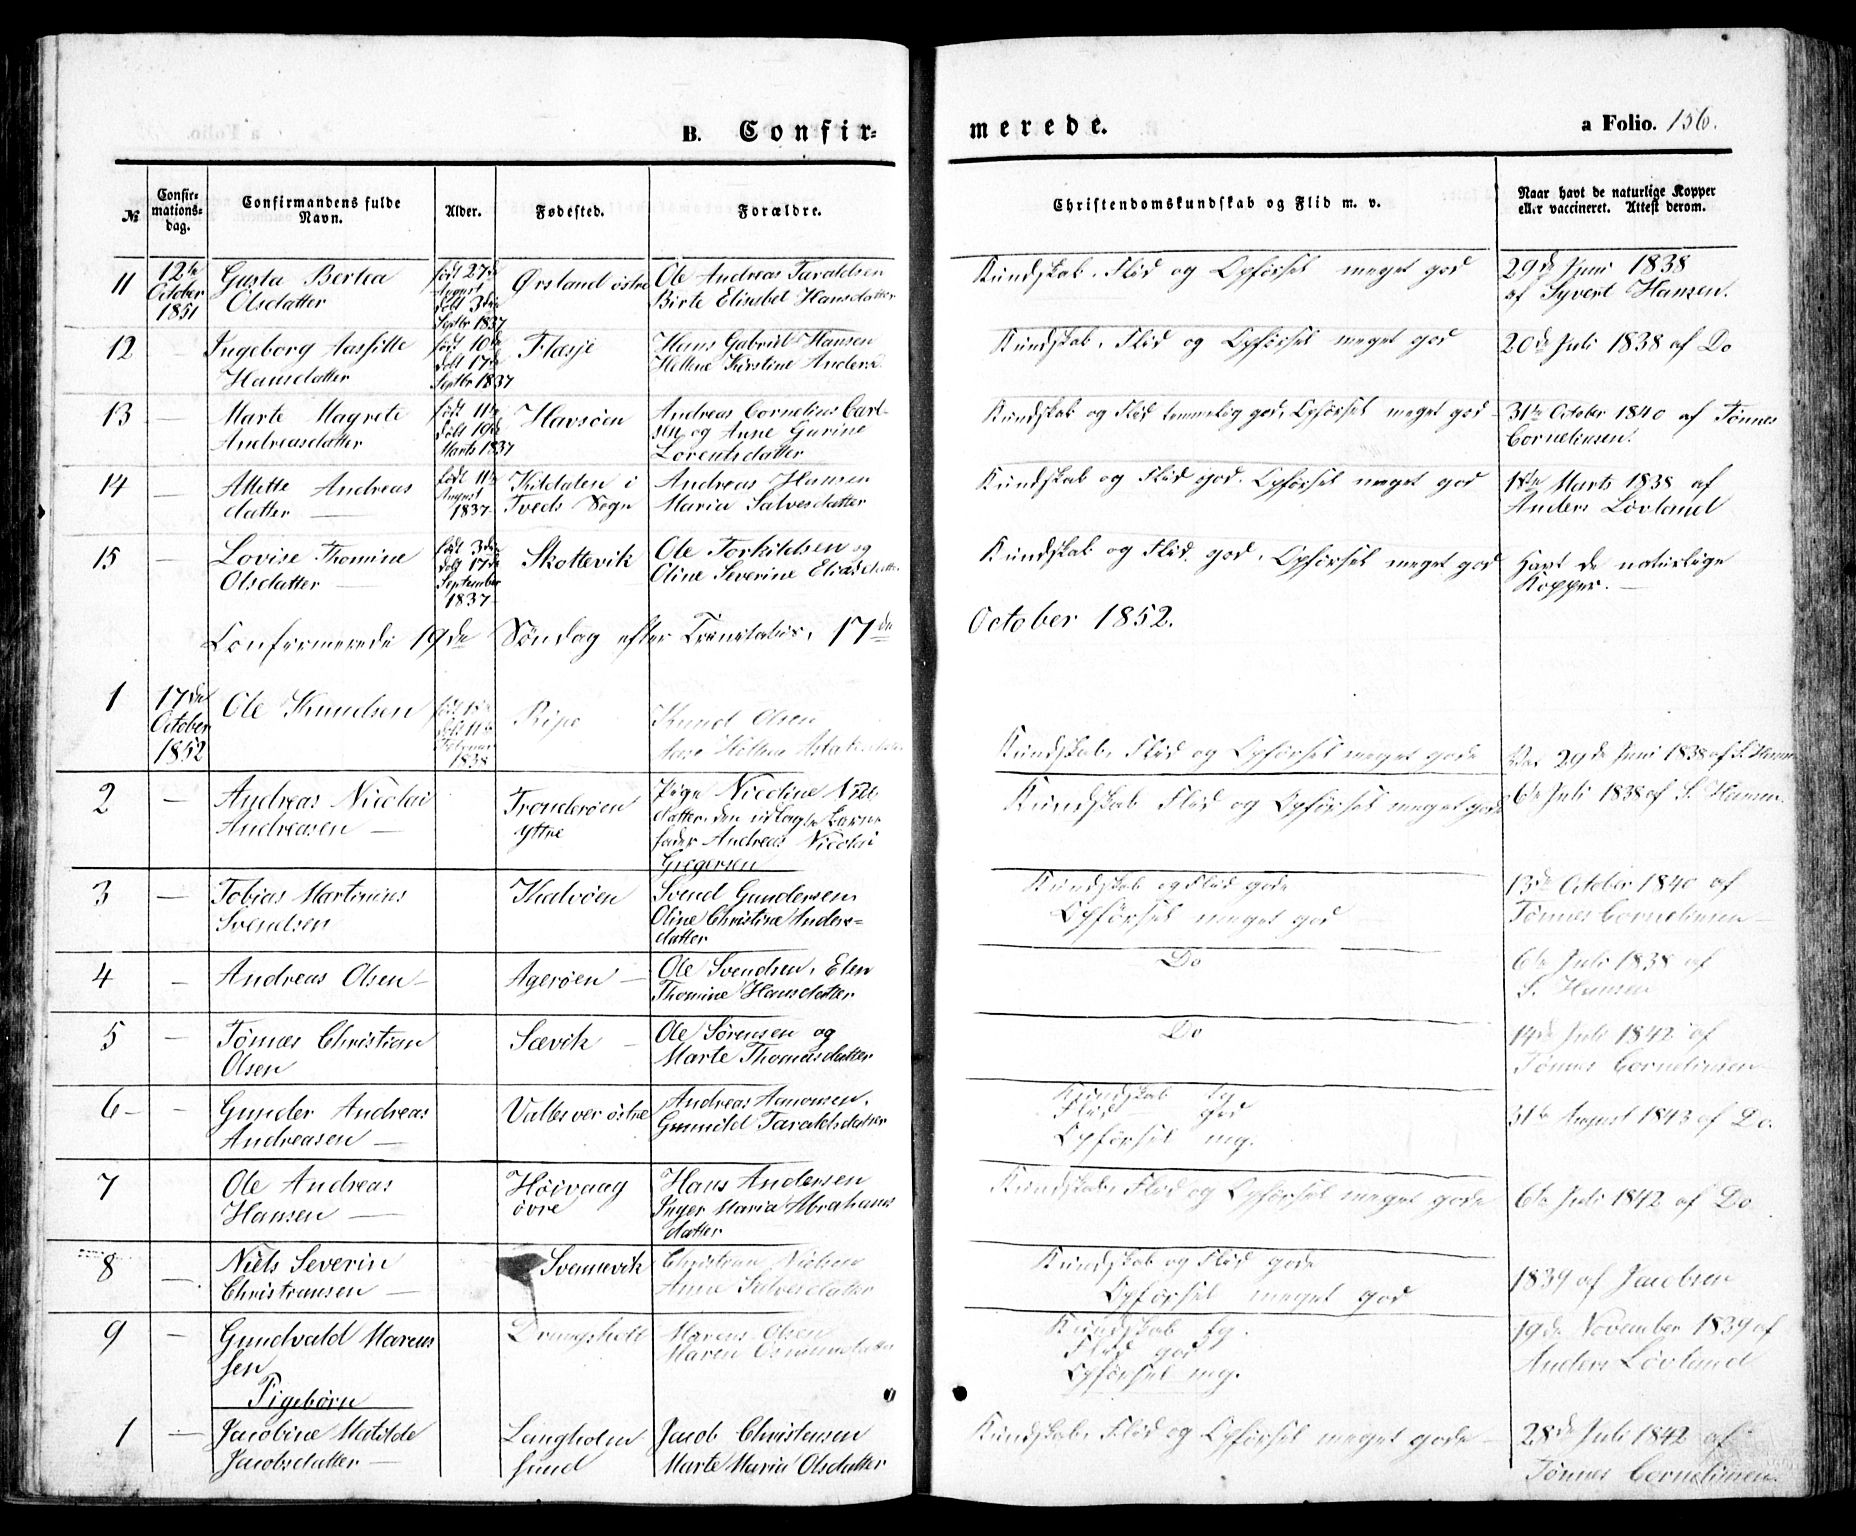 B. Confir-
merede.
a Folio. 156.
№
Confir-
mations-
dag.
Confirmandens fulde
Navn.
Alder.
Fødested.
Forældre.
Christendomskundskab og Flid m. v.
Naar havt de naturlige Kopper
eller vaccineret. Attest derom.
11
12te
October
1851
Gusta Bertea
Olsdatter
født 27de
August
døbt 3die
Septbr 1837
Ørsland østre
Ole Andreas Taraldsen
Birte Elisabet Hansdatter
Kundskab, Flid og Opførsel meget god
29de Juni 1838
af Syvert Hansen.
12
Ingeborg Aasille
Hansdatter
født 10de
døbt 17de
Septbr 1837
Flæsje
Hans Gabriel Hansen
Hellene Kirstine Anders
Kundskab, Flid og Opførsel meget god
20de Juli 1838 af Do
13 —
Marte Magrete
Andreasdatter
født 11te
døbt 19de
Marts 1837
Havsøen
Andreas Cornelius Carl-
sen og Anne Gurine
Lorentsdatter
Kundskab og Flid temmelig god, Opførsel meget god
31te October 1840 af Tønnes
Corneliusen.
14 —
Allette Andreas
datter —
født 11te
August
1837
Kildalen i
Tveds Sogn
Andreas Hansen
Maria Salvesdatter
Kundskab og Flid god. Opførsel meget god
18de Marts 1838 af
Anders Lövland
15 —
Lovise Thomine
Olsdatter —
født 3die
døbt 17de
September
1837
Skottevik
Ole Torkildsen og
Oline Severine Eliasdatter
Kundskab og Flid god, Opførsel meget god
Havt de naturlige
Kopper. —
Confirmerede 19de Søndag efter Trinitatis, 17de
October 1852.
1
17de
October
1852
Ole Knudsen
Februar
1838
Ripe
Knud Olsen
Kundskab, Flid og Opførsel meget gode
29de Juni 1838 af S. Hansen
2 —
Andreas Nicolai
Andreasen —
Trondersen
yttre
Pige Nicoline Nils
datter, den udlagte Barne
fader Andreas Nicolai
Gregersen
Kundskab Flid og Opførsel meget gode
6te Juli 1838 af S. Hansen
3 —
Tobias Martinius
Svendsen
Kalvøen
Svend Gundersen,
Oline Christine Anders-
datter
Kundskab og Flid gode
Opførsel meget god
13de October 1840 af
Tønnes Corneliusen —
4 —
Andreas Olsen —
Agerøen —
Ole Svendsen, Elen
Thomine Hansdatter
Do
6te Juli 1838 af
S. Hansen
5 —
Tønnes Christian
Olsen
Sævik —
Ole Sørensen og
Marte Thomasdatter
Do
14de Juli 1842 af
Tønnes Corneliusen
6 — —
Gunder Andreas
Andreasen —
Vallesver østre
Andreas Aamonsen,
Gunnild Taraldsdatter
Kundskab tg
Flid god
Opførsel mg.
31te August 1843 af Do.
7
Ole Andreas
Hansen —
Høivaag
övre
Hans Andersen
Inger Maria Abrahams
datter
Kundskab, Flid og Opførsel meget gode
6te Juli 1842 af Do
8 —
Niels Severin
Christiansen —
Svennevik
Christian Nielsen
Anne Salvesdatter
Kundskab og Flid gode
Opførsel meget god
1839 af Jacobsen
9 —
Gundvald Marcus
sen
Drangsholt
Marcus Olsen
Maren Osmundsdatter
Kundskab tg.
Flid god
Opførsel mg.
19de November 1839 af
Anders Lövland
Pigebørn
1 —
Jacobine Matilde
Jacobsdatter —
Langholm
sund
Jacob Christensen
Marte Maria Olsdatter
Kundskab, Flid og Opførsel meget gode —
28de Juli 1842 af
Tønnes Corneliusen.